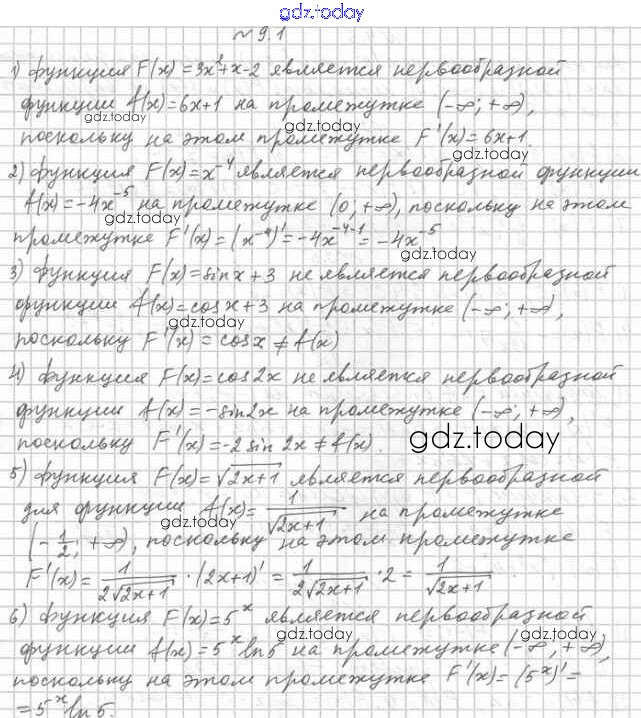 gdz.today
№ 9.1
1) функция F(x) = 3x²+x-2 является первообразной
функции f(x) = 6x+1 на промежутке (-∞; +∞),
gdz.today
поскольку на этом промежутке F'(x) = 6x+1.
gdz.today
2) функция F(x) = x⁻⁴ является первообразной функции
gdz.today
f(x) = -4x⁻⁵ на промежутке (0; +∞), поскольку на этом
gdz.today
промежутке F'(x) = (x⁻⁴)' = -4x⁻⁴⁻¹ = -4x⁻⁵
gdz.today
3) функция F(x) = sinx + 3 не является первообразной
функции f(x) = cosx + 3 на промежутке (-∞; +∞),
gdz.today
поскольку F'(x) = cosx ≠ f(x)
4) функция F(x) = cos2x не является первообразной
функции f(x) = -sin2x на промежутке (-∞; +∞),
поскольку F'(x) = -2 sin 2x ≠ f(x).
gdz.today
5) функция F(x) = √2x+1 является первообразной
для функции f(x) = 1/√2x+1 на промежутке
gdz.today
(-1/2; +∞), поскольку на этом промежутке
F'(x) = 1/2√2x+1 · (2x+1)' = 1/2√2x+1 · 2 = 1/√2x+1
6) функция F(x) = 5ˣ является первообразной
gdz.today
функции f(x) = 5ˣ ln5 на промежутке (-∞; +∞),
gdz.today
поскольку на этом промежутке F'(x) = (5ˣ)' =
= 5ˣ ln 5.